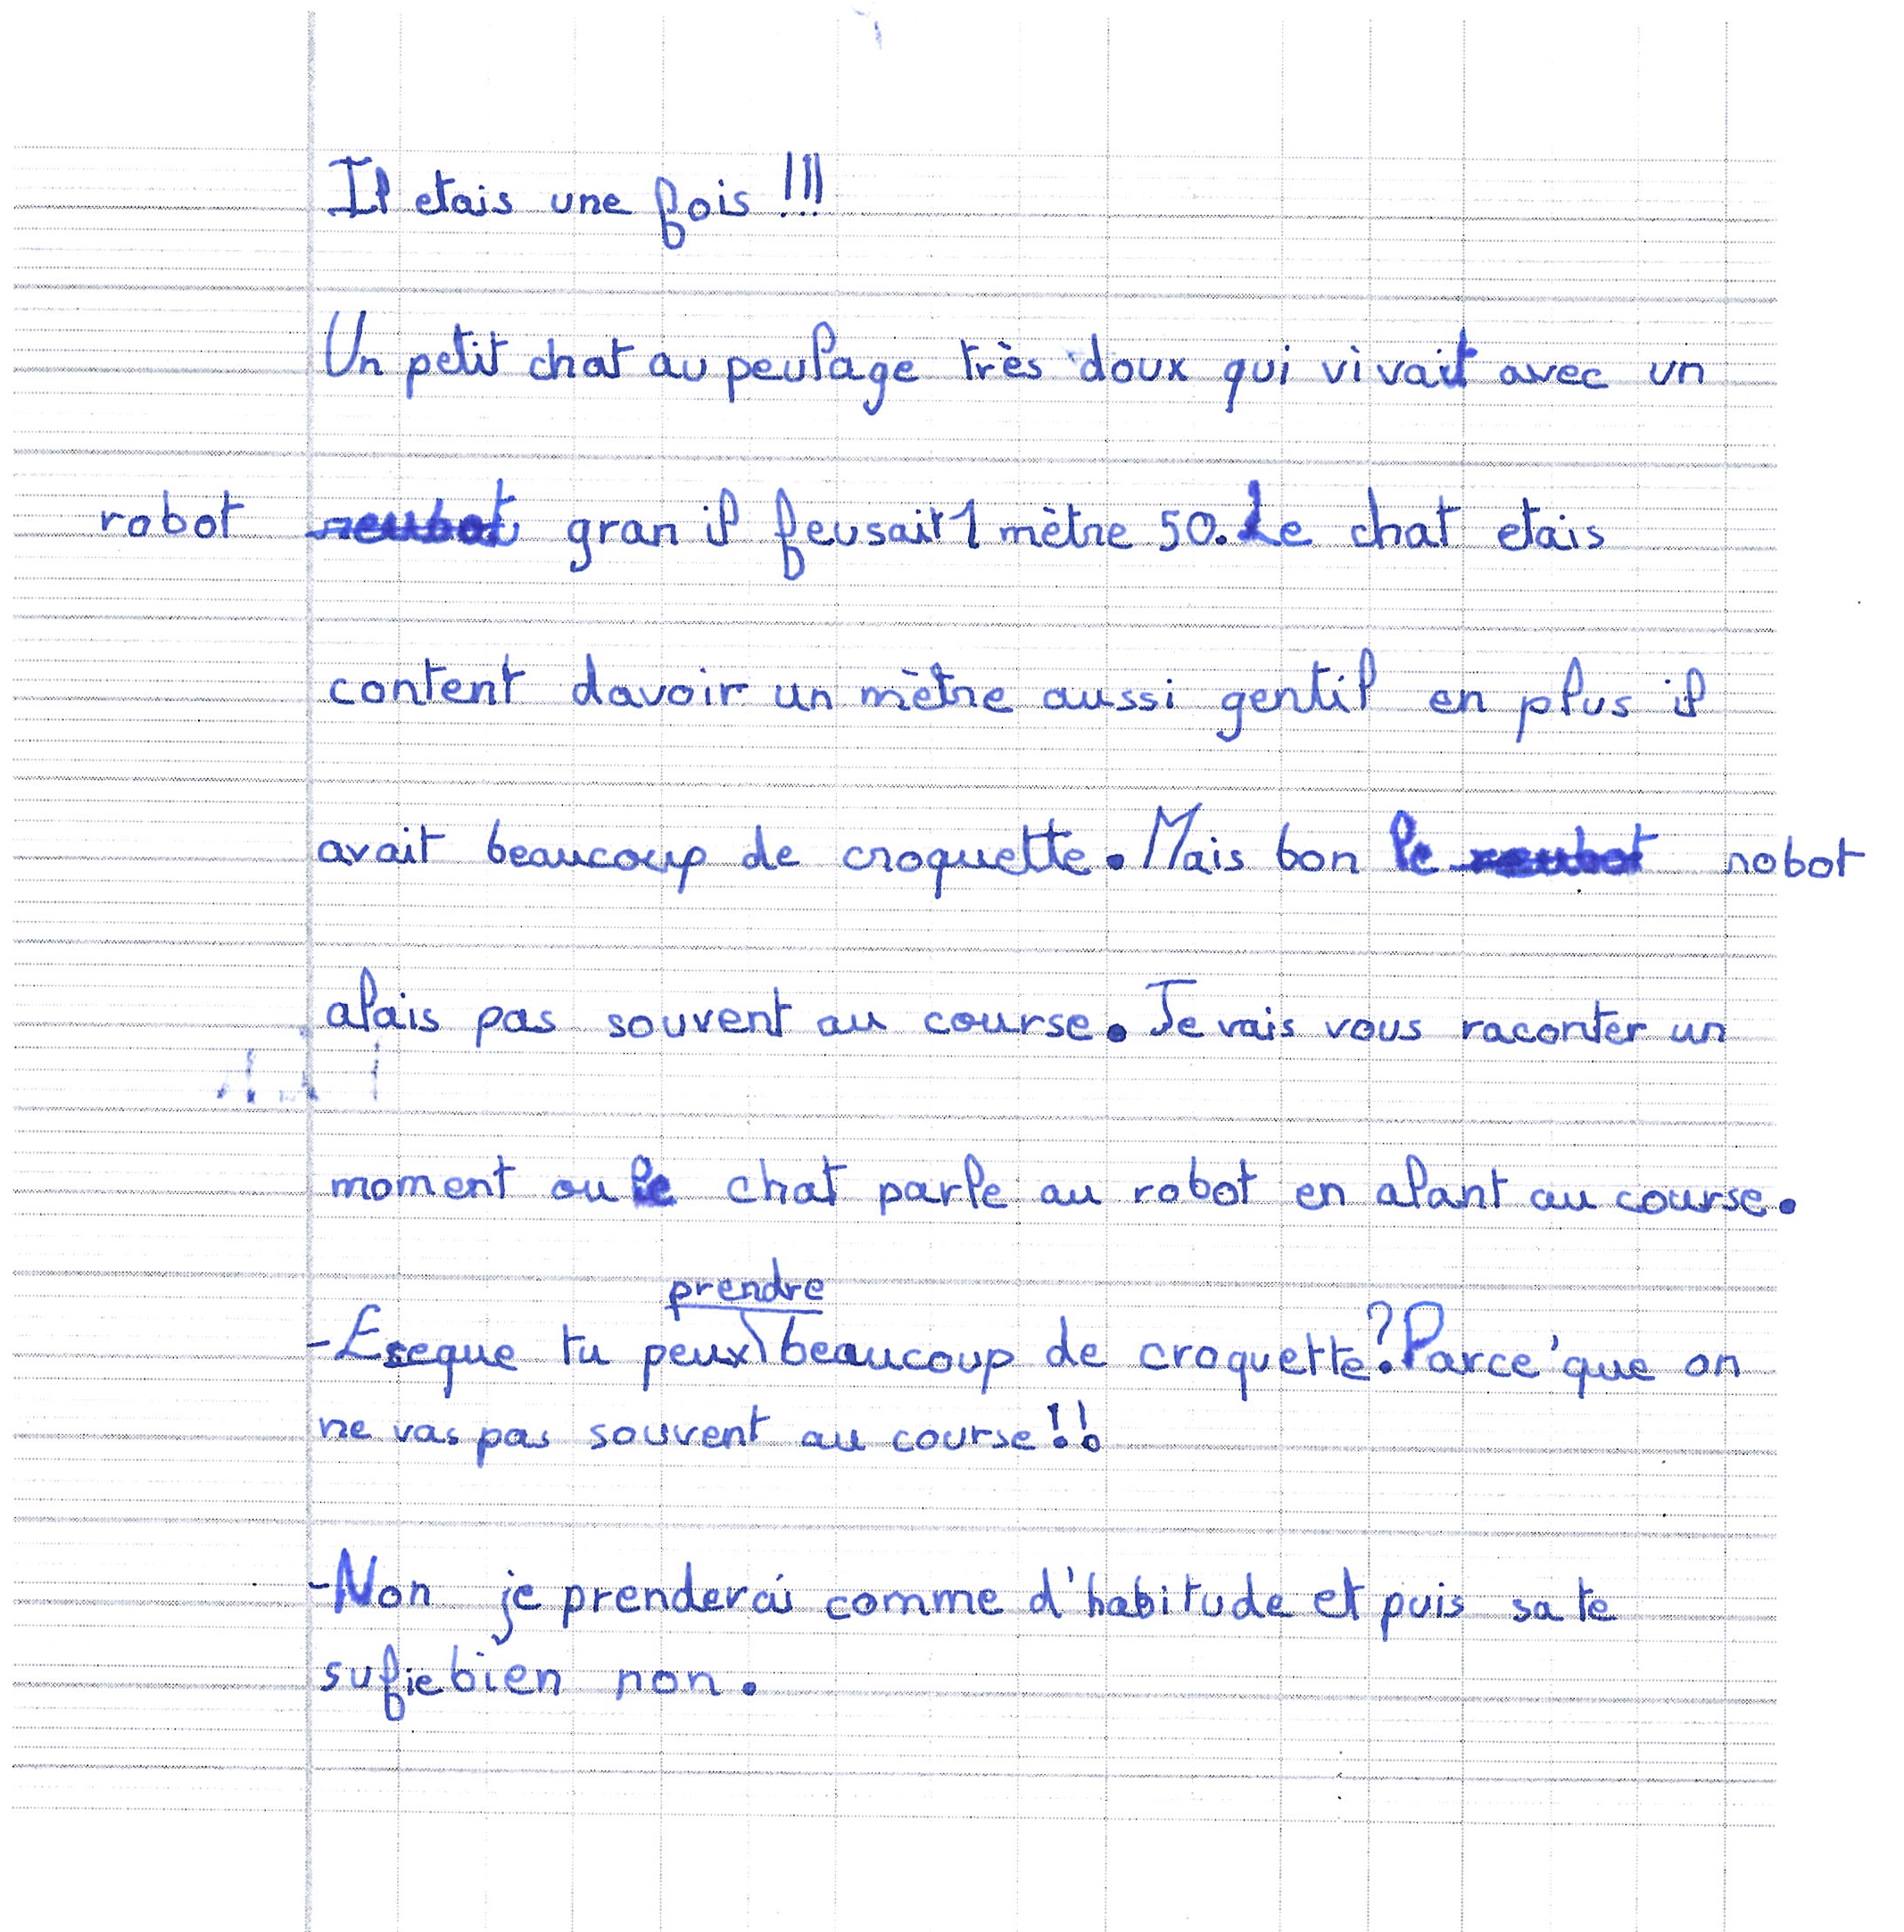 Il etais une fois !!!
Un petit chat au peulage très doux qui vivait avec un
robot reubot gran il feusait 1 mètre 50. Le chat etais
content davoir un mètre aussi gentil en plus il
avait beaucoup de croquette. Mais bon le reubot robot
alais pas souvent au course. Je vais vous raconter un
moment ou le chat parle au robot en alant au course.
prendre
-Eseque tu peux beaucoup de croquette? Parce'que on
ne vas pas souvent au course!!
-Non je prenderai comme d'habitude et puis sa te
sufie bien non.